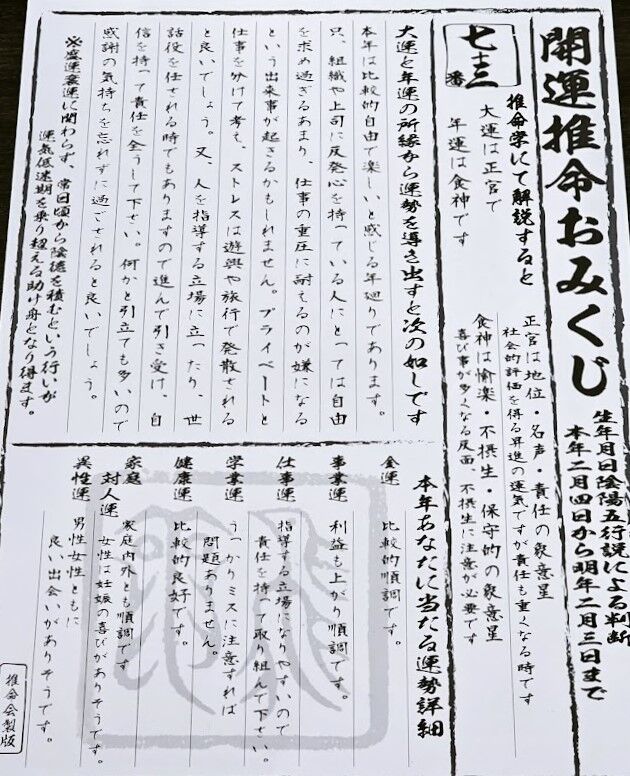 開運推命おみくじ
生年月日陰陽五行説による判断
本年二月四日から明年二月三日まで
七十三番
推命学にて解説すると
大運は正官で
年運は食神です
正官は地位・名声・責任の象意星
社会的評価を得る昇進の運気ですが責任も重くなる時です
食神は愉楽・不摂生・保守的の象意星
喜び事が多くなる反面、不摂生に注意が必要です
大運と年運の所縁から運勢を導き出すと次の如しです
本年は比較的自由で楽しいと感じる年廻りであります。
只、組織や上司に反発心を持っている人にとっては自由
を求め過ぎるあまり、仕事の重圧に耐えるのが嫌になる
という出来事が起きるかもしれません。プライベートと
仕事を分けて考え、ストレスは遊興や旅行で発散される
と良いでしょう。又、人を指導する立場に立ったり、世
話役を任される時でもありますので進んで引き受け、自
信を持って責任を全うして下さい。何かと引立ても多いので
感謝の気持ちを忘れずに過ごされると良いでしょう。
※盛運衰運に関わらず、常日頃から陰徳を積むという行いが
運気低迷期を乗り超える助け舟となり得ます。
本年あなたに当たる運勢詳細
金運
比較的順調です。
事業運
利益も上がり順調です。
仕事運
指導する立場になりやすいので
責任を持って取り組んで下さい。
学業運
うっかりミスに注意すれば
問題ありません。
健康運
比較的良好です。
家庭
対人運
家庭内外とも順調です
女性は妊娠の喜びがありそうです。
異性運
男性女性ともに
良い出会いがありそうです。
推命会製版